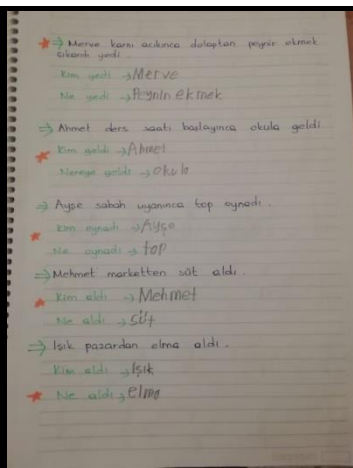 ⇒ Merve karnı acıkınca dolaptan peynir ekmek
çıkarıp yedi.
Kim yedi → Merve
Ne yedi → Peynin ekmek
⇒ Ahmet ders saati başlayınca okula geldi
Kim geldi → Ahmet
Nereye geldi → okula
⇒ Ayşe sabah uyanınca top oynadı.
Kim oynadı → Ayşe
Ne oynadı → top
⇒ Mehmet marketten süt aldı.
Kim aldı → Mehmet
Ne aldı → süt
⇒ Işık pazardan elma aldı.
Kim aldı → Işık
Ne aldı → elma